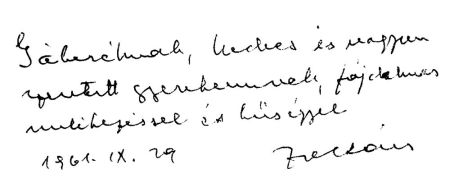 Gáboréknak, kedves és nagyon
szeretett gyerekeimnek, fájdalmas
emlékezéssel és hűséggel
1961. IX. 29